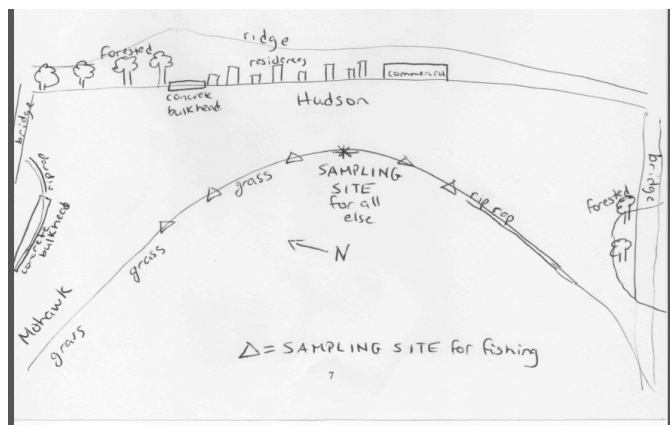 ridge
forested
residences
commercial
concrete
bulkhead
Hudson
bridge
bridge
riprap
concrete
bulkhead
Mohawk
grass
grass
grass
SAMPLING
SITE
for all
else
rip rap
forested
N
△ = SAMPLING SITE for fishing
7